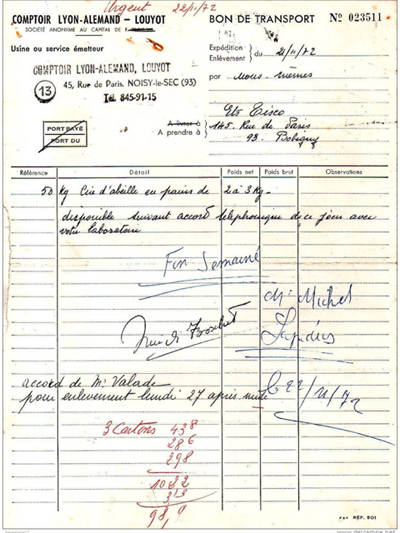 Urgent 22/11/72
COMPTOIR LYON-ALEMAND - LOUYOT
SOCIÉTÉ ANONYME AU CAPITAL DE F
Usine ou service émetteur
COMPTOIR LYON-ALEMAND, LOUYOT
13
45, Rue de Paris. NOISY-le-SEC (93)
Tél. 845-91-15
PORT PAYÉ
PORT DU
BON DE TRANSPORT
No 023511
Expédition
Enlèvement
du 21/11/72
par nous-mêmes
A livrer à
A prendre à
Ets Cisco
145, Rue de Paris
93. Bobigny
Référence Détail Poids net Poids brut Observations
50 kg Cire d'abeille en pains de 2 à 3 kg -
disponible suivant accord téléphonique de ce jour avec
votre laboratoire
Fin Semaine
Mr Michel
accord de Mr Valade
pour enlèvement lundi 27 après midi
le 22/11/72
3 Cartons 438
286
298
1022
98,9
RÉF. 801
www.delcampe.net